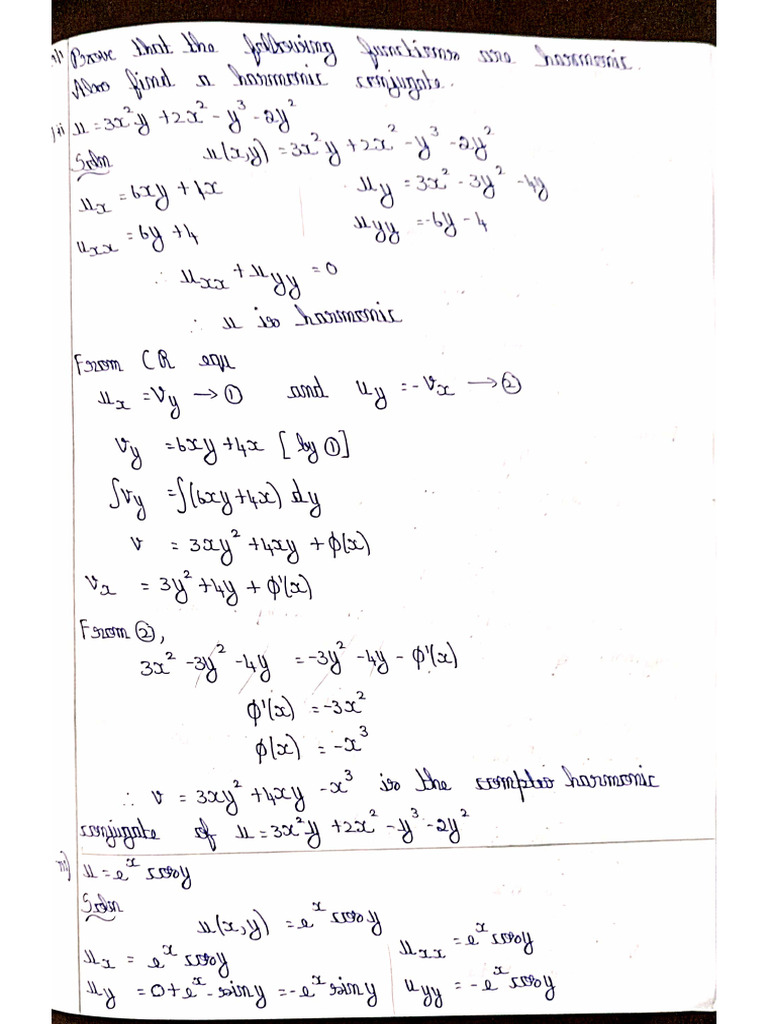 Prove that the following functions are harmonic.
Also find a harmonic conjugate.
ii) u = 3x²y + 2x² - y³ - 2y²
Soln u(x,y) = 3x²y + 2x² - y³ - 2y²
u_x = 6xy + 4x u_y = 3x² - 3y² - 4y
u_xx = 6y + 4 u_yy = -6y - 4
∴ u_xx + u_yy = 0
∴ u is harmonic
From CR equ
u_x = v_y → ① and u_y = -v_x → ②
v_y = 6xy + 4x [by ①]
∫v_y = ∫(6xy + 4x) dy
v = 3xy² + 4xy + ϕ(x)
v_x = 3y² + 4y + ϕ'(x)
From ②,
3x² - 3y² - 4y = -3y² - 4y - ϕ'(x)
ϕ'(x) = -3x²
ϕ(x) = -x³
∴ v = 3xy² + 4xy - x³ is the harmonic
conjugate of u = 3x²y + 2x² - y³ - 2y²
iii) u = e^x cosy
Soln
u(x,y) = e^x cosy
u_x = e^x cosy u_xx = e^x cosy
u_y = 0 + e^x - siny = -e^x siny u_yy = -e^x cosy